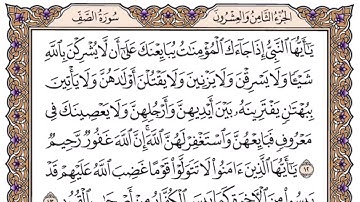 الجزء الثامن والعشرون
سورة الصف
يَٰٓأَيُّهَا ٱلنَّبِىُّ إِذَا جَآءَكَ ٱلْمُؤْمِنَٰتُ يُبَايِعْنَكَ عَلَىٰٓ أَن لَّا يُشْرِكْنَ بِٱللَّهِ
شَيْـًٔا وَلَا يَسْرِقْنَ وَلَا يَزْنِينَ وَلَا يَقْتُلْنَ أَوْلَٰدَهُنَّ وَلَا يَأْتِينَ
بِبُهْتَٰنٍ يَفْتَرِينَهُۥ بَيْنَ أَيْدِيهِنَّ وَأَرْجُلِهِنَّ وَلَا يَعْصِينَكَ فِى
مَعْرُوفٍ فَبَايِعْهُنَّ وَٱسْتَغْفِرْ لَهُنَّ ٱللَّهَ إِنَّ ٱللَّهَ غَفُورٌ رَّحِيمٌ
١٢ يَٰٓأَيُّهَا ٱلَّذِينَ ءَامَنُوا۟ لَا تَتَوَلَّوْا۟ قَوْمًا غَضِبَ ٱللَّهُ عَلَيْهِمْ قَدْ
يَئِسُوا۟ مِنَ ٱلْـَٔاخِرَةِ كَمَا يَئِسَ ٱلْكُفَّارُ مِنْ أَصْحَٰبِ ٱلْقُبُورِ ١٣